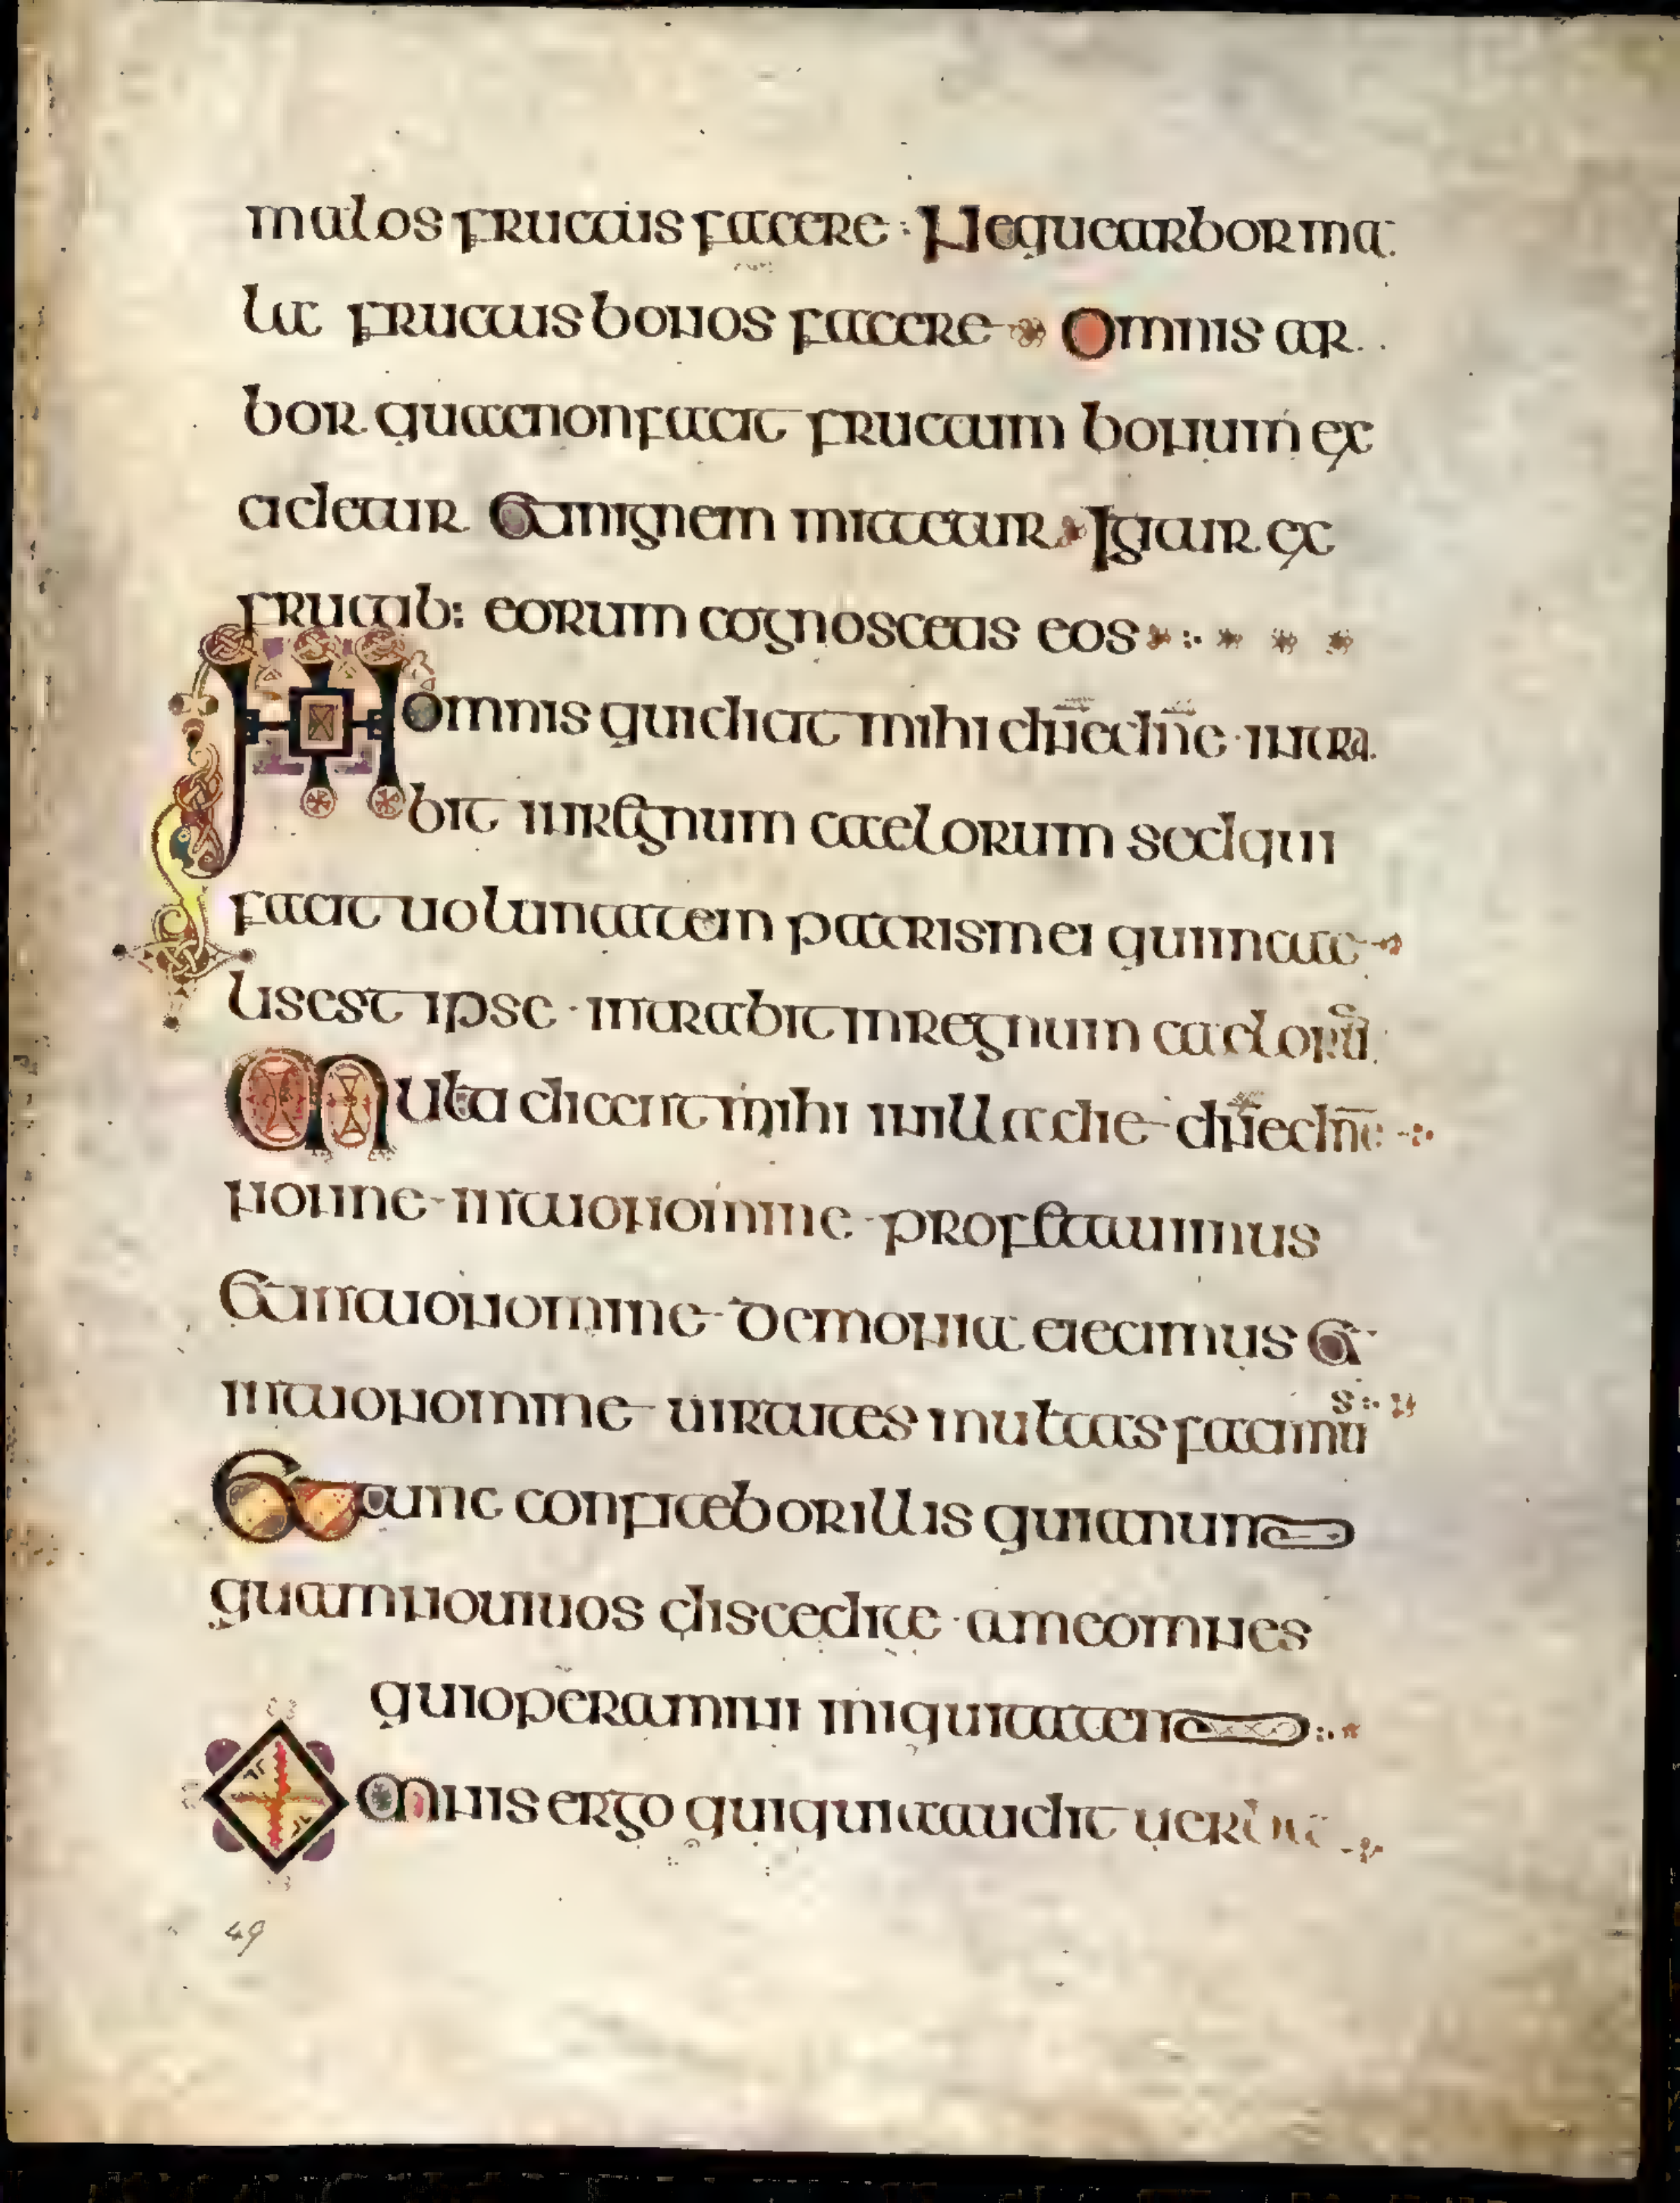 malos fructus facere · Neque arbor ma
la fructus bonos facere Omnis ar
bor quae non facit fructum bonum ex
cidetur Et in ignem mittetur Igitur ex
fructib: eorum cognoscetis eos
Non omnis qui dicit mihi dn̄e dn̄e · intra
bit in regnum caelorum sed qui
facit uoluntatem patris mei qui in cae
lis est ipse · intrabit in regnum caeloru̅
Multa dicent mihi in illa die dn̄e dn̄e
nonne in tuo nomine · profetauimus
Et in tuo nomine demonia eiecimus Et
in tuo nomine uirtutes multas facimus
Et tunc confitebor illis quia num
quam noui uos discedite · a me omnes
qui operamini iniquitatem
Omnis ergo qui quitaudit uerba
49